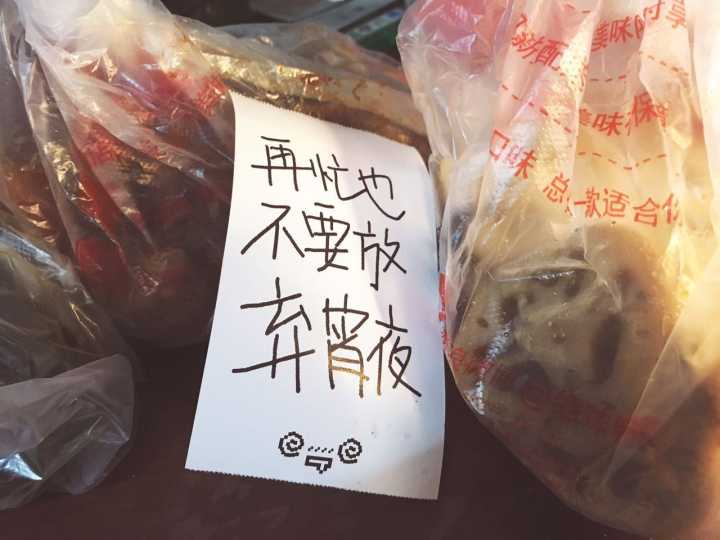 再忙也
不要放
弃宵夜
配 美味
美味 保
口味 总 一款适合你